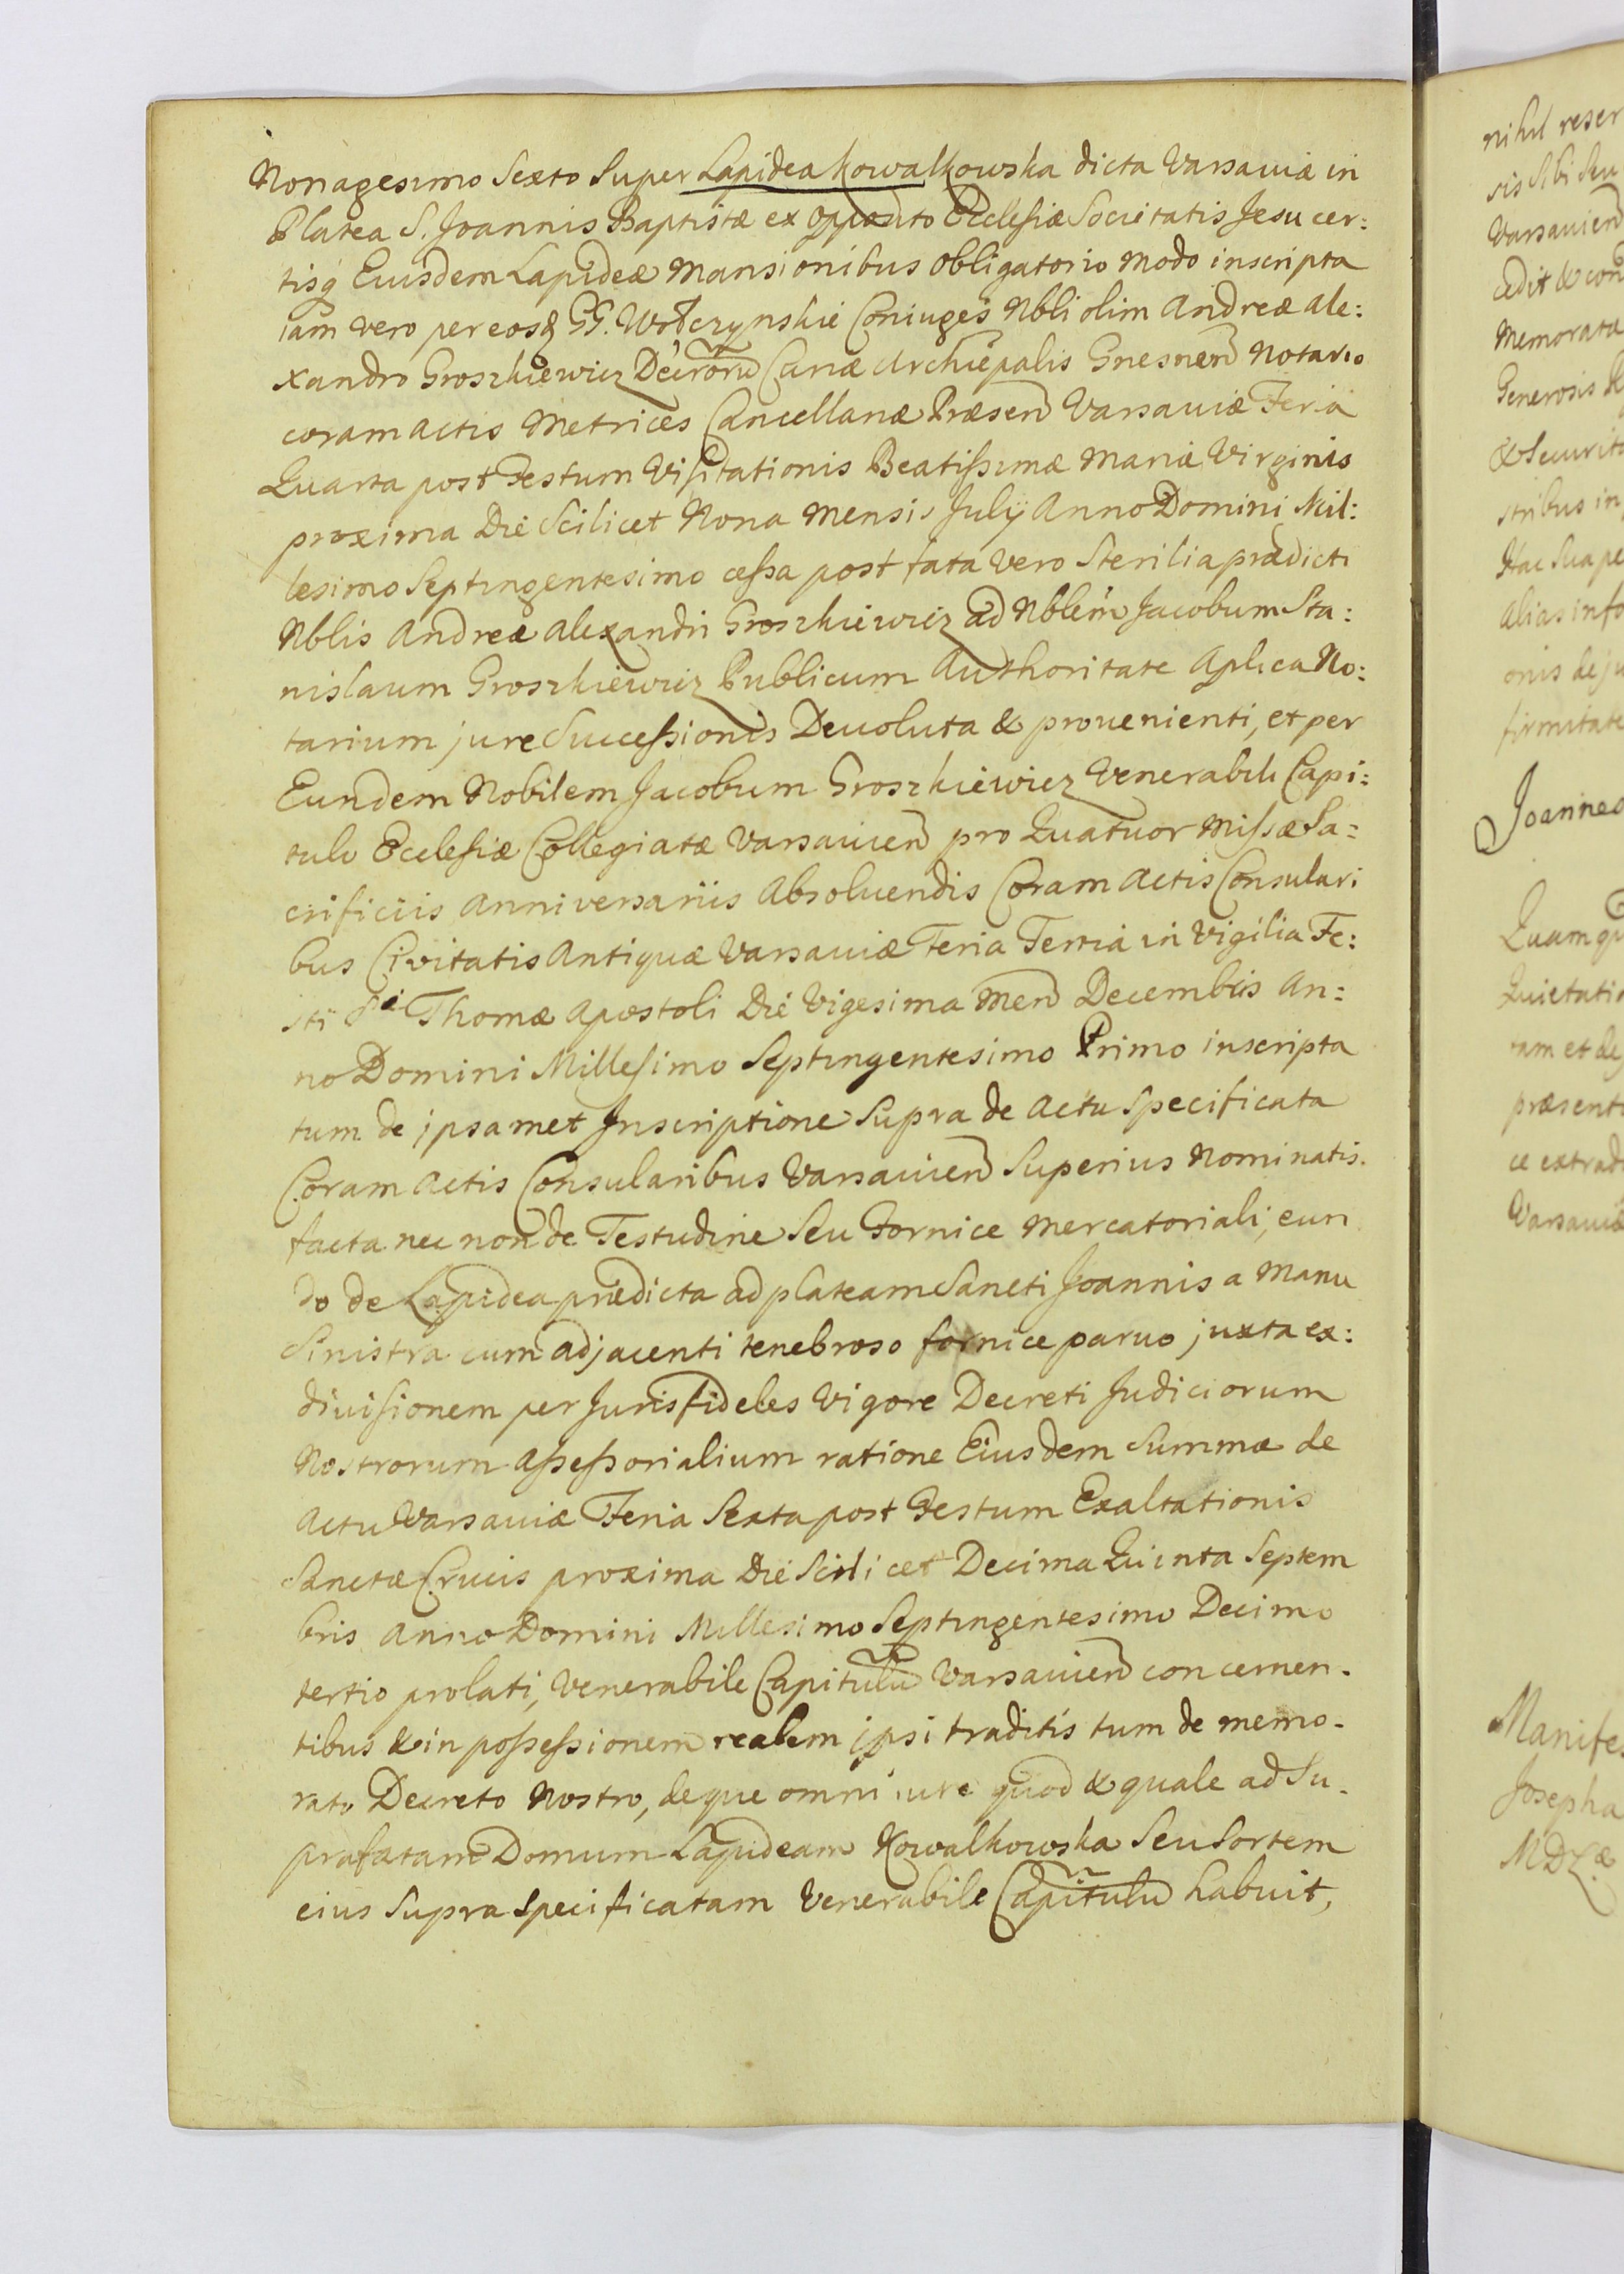 Nonagesimo Sexto Super Lapidea Kowalkowska dicta Varsaviæ in
Platea S. Joannis Baptistæ ex opposito Ecclesiæ Societatis Jesu cer:
tisq Eiusdem Lapideæ Mansionibus obligatorio modo inscripta
iam vero per eosq GG. Wołczynskie Coniuges Nbli olim Andreæ Ale:
xandro Groszkiewicz Decroru Curiæ Archiepalis Gnesnen Notario
coram actis Metrices Cancellariæ Præsen Varsaviæ Feria
Quarta post Festum Visitationis Beatissimæ Mariæ Virginis
proxima Die Scilicet Nona Mensis July Anno Domini Mil:
lesimo Septingentesimo cessa post fata vero Sterilia prædicti
Nblis Andreæ Alexandri Groszkiewicz ad Nblem Jacobum Sta:
nislaum Groszkiewicz Publicum Authoritate Aplica No:
tarium jure Successionis Devoluta & provenienti, et per
Eundem Nobilem Jacobum Groszkiewicz Venerabili Capi:
tulo Ecclesiæ Collegiatæ Varsavien pro Quatuor Missæ Sa:
crificiis Anniversariis Absolvendis Coram Actis Consulari
bus Civitatis Antiquæ Varsaviæ Feria Tertia in Vigilia Fe:
sti Sti Thomæ Apostoli Die Vigesima Men Decembris An:
no Domini Millesimo Septingentesimo Primo inscripta
tum de ipsamet Inscriptione Supra de Actu Specificata
Coram Actis Consularibus Varsavien Superius Nominatis.
facta nec non de Testudine Seu Fornice Mercatoriali, eun
do de Lapidea prædicta ad plateam Sancti Joannis a Manu
Sinistra cum adjacenti tenebroso fornice parvo juxta ex:
divisionem per Jurisfideles Vigore Decreti Judiciorum
Nostrorum Assessorialium ratione Eiusdem Summæ de
Actu Varsaviæ Feria Sexta post Festum Exaltationis
Sanctæ Crucis proxima Die Scilicet Decima Quinta Septem
bris Anno Domini Millesimo Septingentesimo Decimo
tertio prolati, Venerabile Capitulu Varsavien concernen.
tibus & in possessionem realem ipsi traditis tum de memo.
rato Decreto Nostro, deque omni iure quod & quale ad Su.
prafatam Domum Lapideam Kowalkowska Seu Sortem
eius Supra Specificatam Venerabile Capitulu habuit,
nihil reser
sis sibi seu
Varsavien
cedit & con
Memorata
Generosis
& Securita
stribus in
Hac Sua pe
Alias info
onis de ju
firmitate
Joannes
Quam qu
Quietatio
tam et de
præsenti
ce extrad
Varsaviæ
Manifes
Josepha
MDLæ